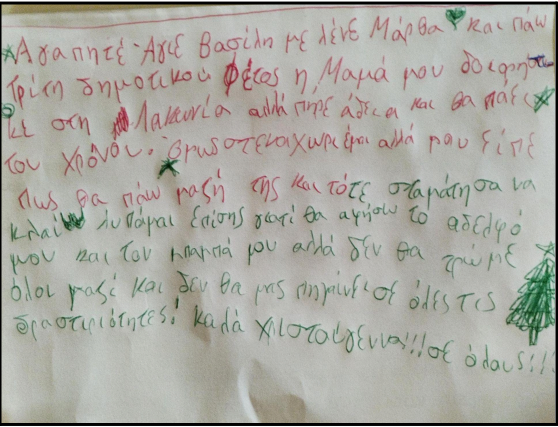 Αγαπητέ Άγιε Βασίλη με λένε Μάρθα και πάω
τρίτη δημοτικού Φέτος η Μαμά μου διορήστη
κε στη Λακωνία αλλά πηρε άδεια και θα πάει
του χρόνου. στεναχωριέμαι αλλά μου είπε
πως θα πάω μαζή της και τότε σταμάτησα να
κλαίω λυπάμαι επίσης γιατί θα αφήσω το αδελφό
μου και τον μπαμπά μου αλλά δεν θα τρώμε
όλοι μαζί και δεν θα μας πηγαίνει σε όλες τις
δραστιριότητες! καλά χριστούγεννα!!! σε όλους!!!